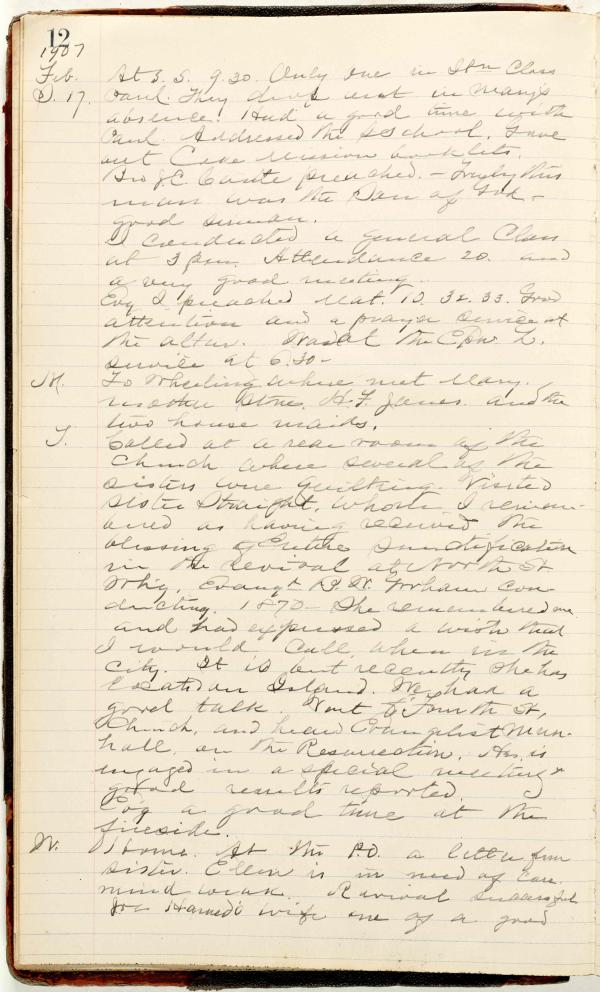 12
1907
Feb. At S. S. 9.30. Only one in Class
S. 17. Paul. They drop out in Mary's
absence. Had a good time with
Paul. Addressed the School. Gave
out Mission booklets.
Bro J. E. preached. - Truly this
man was the Son of God -
good sermon.
I conducted a general Class
at 3 p.m. Attendance 20. and
a very good meeting.
Evg I preached Mat. 10. 32. 33. Good
attention and a prayer service at
the altar. Was at the Epw. L.
service at 6.30-
M. To Wheeling where met Mary.
mother Stone, H. F. Jones. and the
two house maids.
T. Called at a rear room of the
Church where several of the
sisters were quilting. Visited
sister Straight, whom I remem-
bered as having received the
blessing of Entire Sanctification
in the revival at North St
Whg, Evangt B. W. Gorham con
ducting. 1870- She remembered me
and had expressed a wish that
I would call, when in the
city. It is but recently she has
located on Island. We had a
good talk. Went to Fourth St,
Church, and heard Evangelist Mun-
hall, on the Resurrection. He is
engaged in a special meeting &
good results reported.
Evg a good time at the
fireside.
W. Home. At the P.O. a letter from
sister. Ellen is in need of care
mind weak. Revival successful
Joe wife one of a good